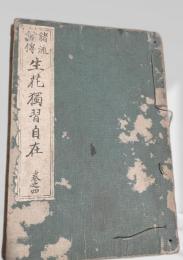 諸流
秘傳
生花獨習自在
巻之四